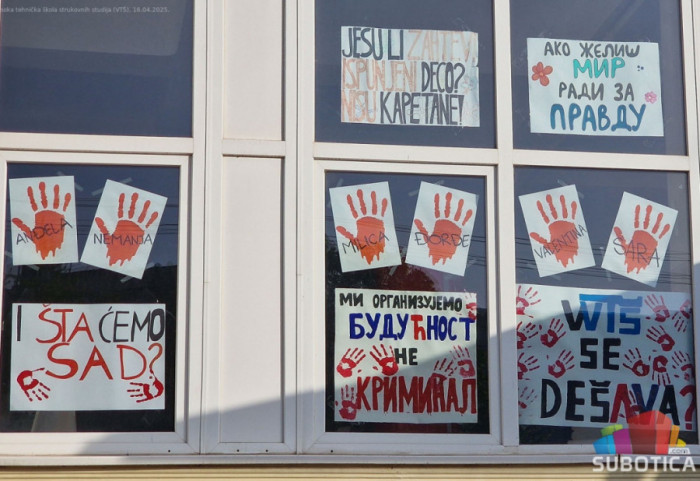 ska tehnička škola strukovnih studija (VTŠ), 16.04.2025.
JESU LI ZAHTEVI
ISPUNJENI DECO?
NISU KAPETANE!
АКО ЖЕЛИШ
МИР
РАДИ ЗА
ПРАВДУ
ANĐELA
NEMANJA
MILICA
ĐORĐE
VALENTINA
SARA
I ŠTA ĆEMO
SAD?
МИ ОРГАНИЗУЈЕМО
БУДУЋНОСТ
НЕ
КРИМИНАЛ
WTŠ
SE
DEŠAVA?
.com
SUBOTICA